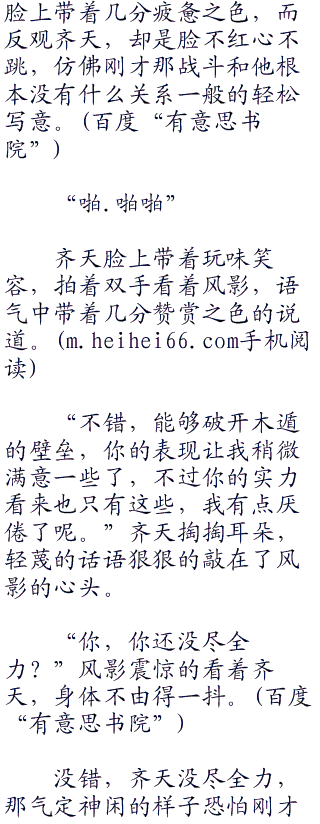 脸上带着几分疲惫之色，而
反观齐天，却是脸不红心不
跳，仿佛刚才那战斗和他根
本没有什么关系一般的轻松
写意。(百度“有意思书
院”)
“啪.啪啪”
齐天脸上带着玩味笑
容，拍着双手看着风影，语
气中带着几分赞赏之色的说
道。(m.heihei66.com手机阅
读)
“不错，能够破开木遁
的壁垒，你的表现让我稍微
满意一些了，不过你的实力
看来也只有这些，我有点厌
倦了呢。”齐天掏掏耳朵，
轻蔑的话语狠狠的敲在了风
影的心头。
“你，你还没尽全
力？”风影震惊的看着齐
天，身体不由得一抖。(百度
“有意思书院”)
没错，齐天没尽全力，
那气定神闲的样子恐怕刚才